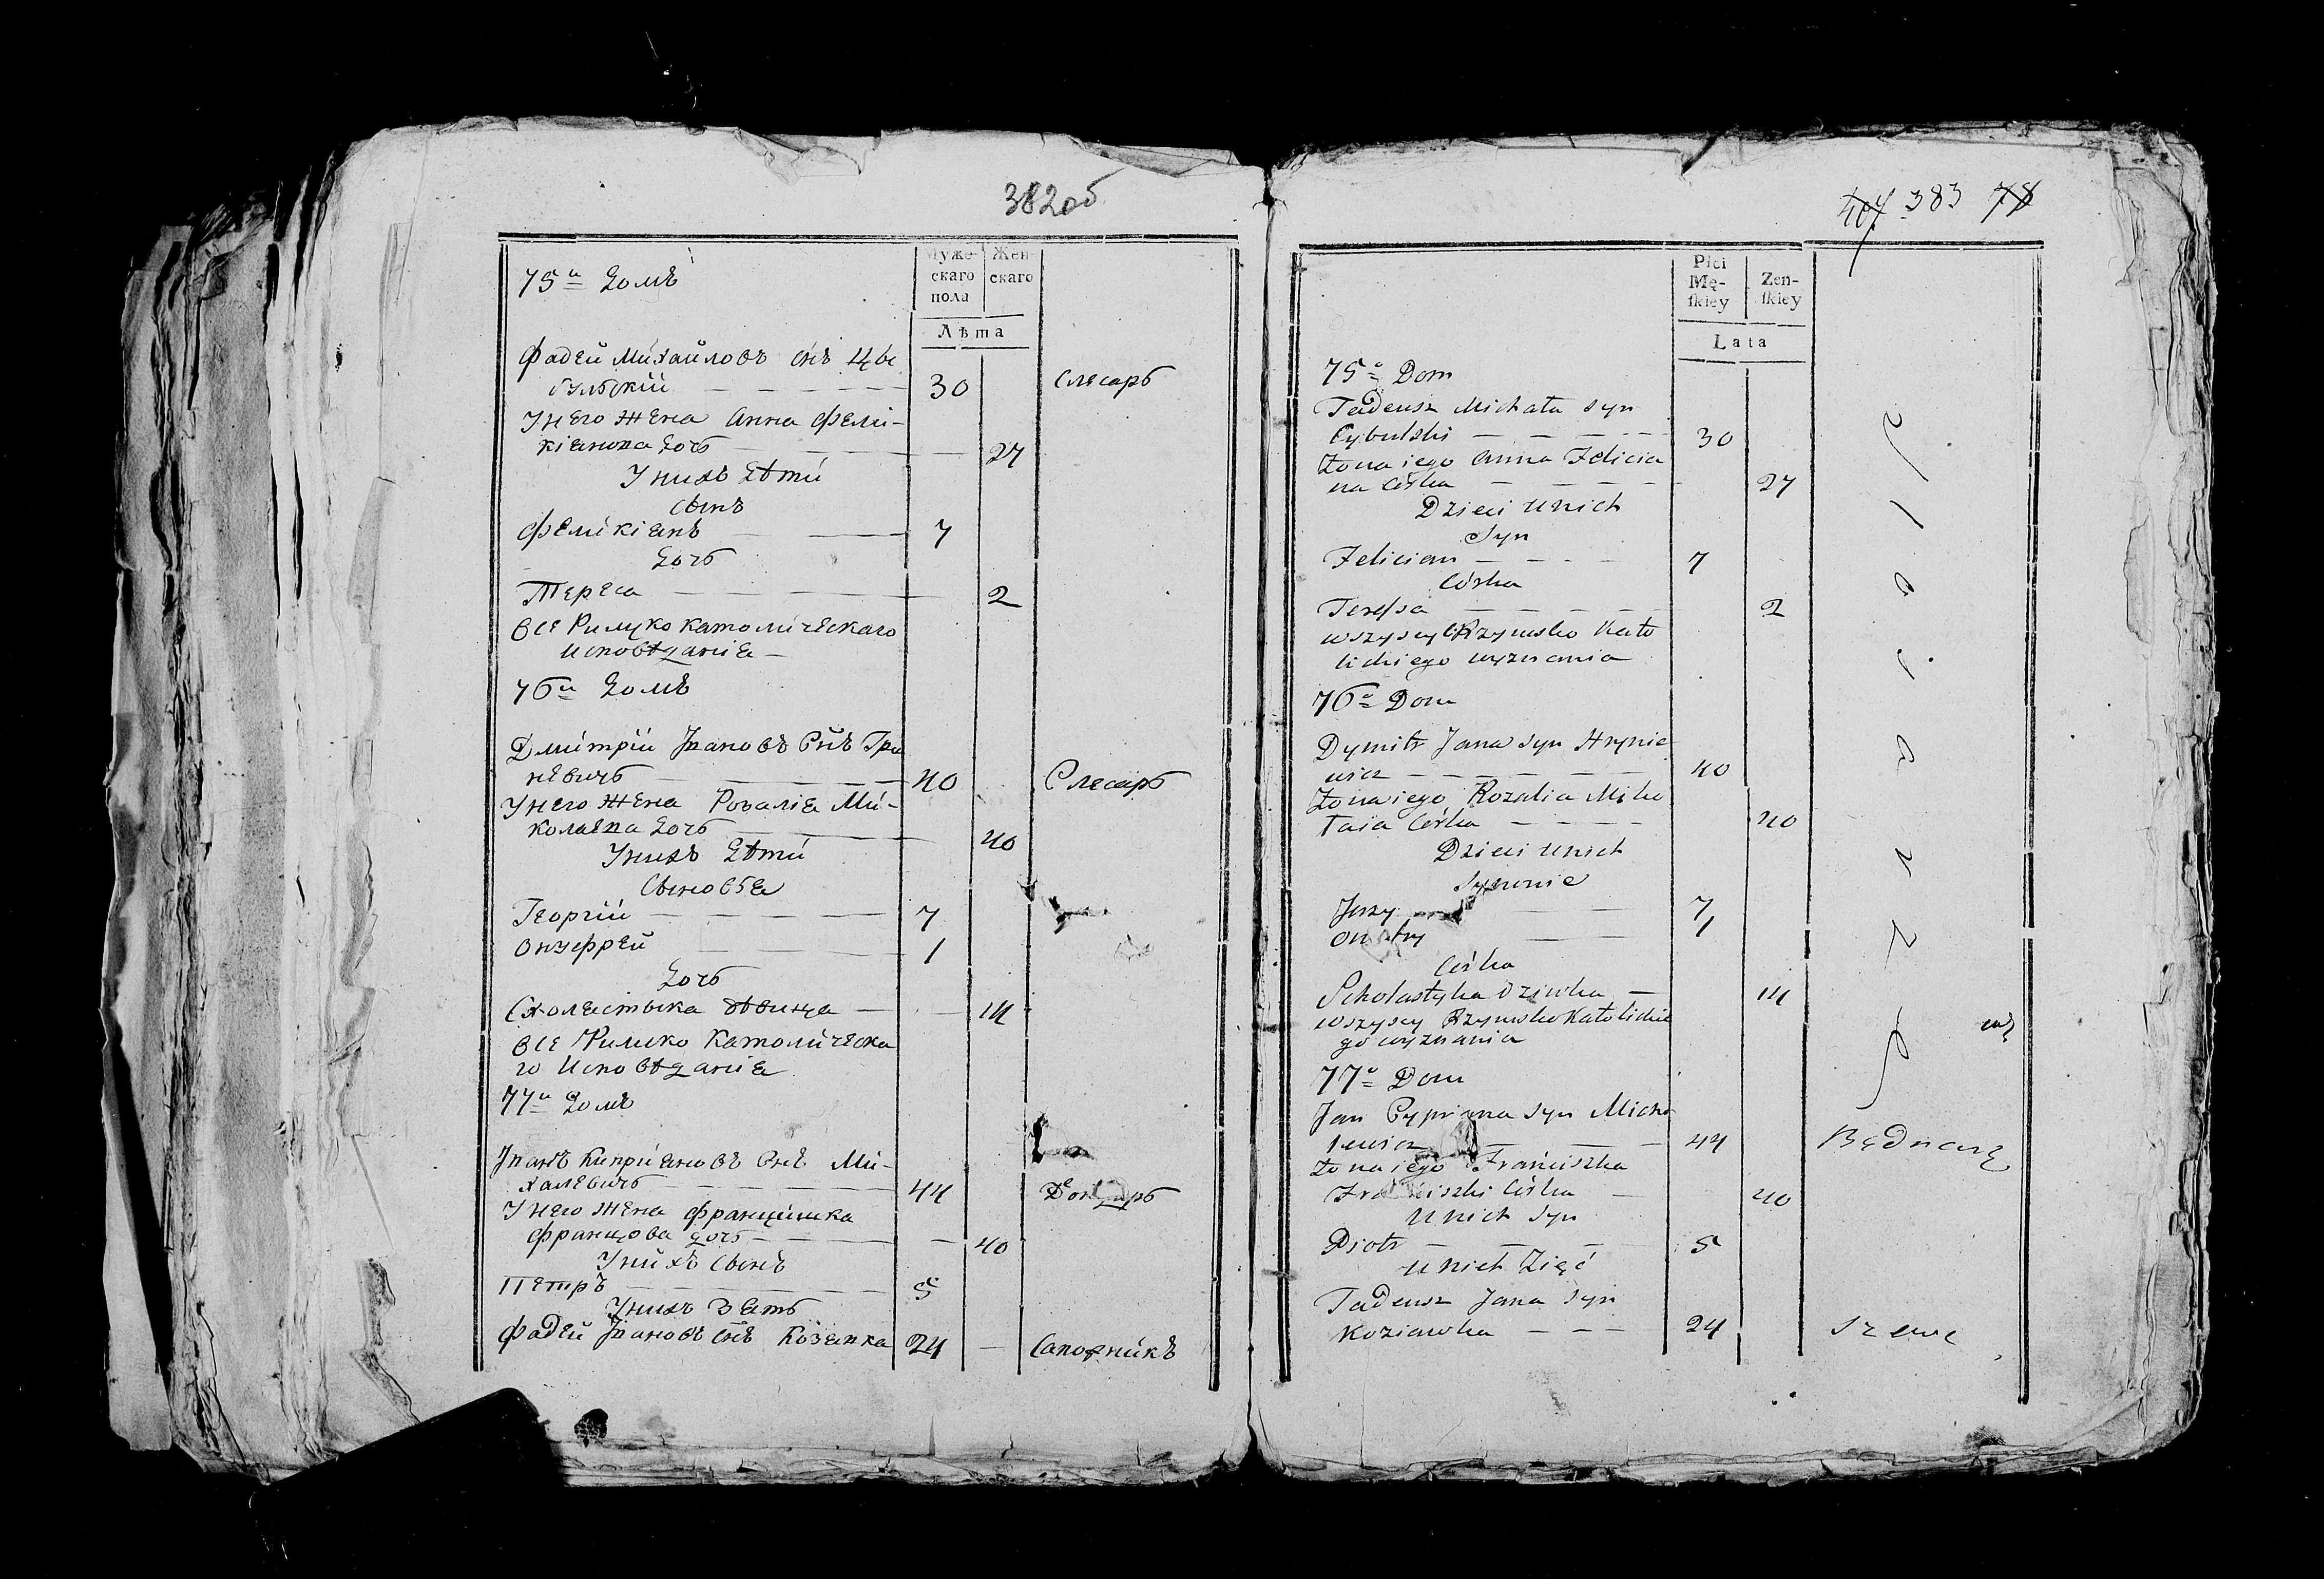 382об
75й Домъ
Муже-
скаго
пола
Жен
скаго
Лѣта
Фадей Михайловъ снъ Цы
бульскій 30 Слесарь
У него жена Анна Фели-
кіянова дочь 27
У нихъ дѣти
сынъ
Феликіянъ 7
дочь
Тереса 2
все Римско католическаго
исповѣданія
76й Домъ
Дмитрій Ивановъ снъ Гри
невичъ 40 Слесарь
У него жена Розалія Ми-
колаева дочь 40
У нихъ дѣти
Сыновья
Георгій 7
Онуфрей 1
дочь
Схоластыка дѣвица 14
все Римско Католическа
го Исповѣданія
77й Домъ
Иванъ Кипріяновъ снъ Ми-
халевичъ 44
У него жена Францишка
Францова дочь 40
У нихъ сынъ
Петръ 5
У нихъ зять
Фадей Ивановъ снъ Козявка 24 Сапожникъ
407 383 78
Płci
Mę-
skiey
Zen-
skiey
Lata
75o Dom
Tadeusz Michała syn
Cybulski 30
Żona iego Anna Felicia
na Córka 27
Dzieci u nich
Syn
Felician 7
Córka
Teressa 2
wszyscy Rzymsko Kato
lickiego wyznania
76o Dom
Dymitr Jana syn Hrynie
wicz 40
Żona iego Rozalia Miko
łaia Córka 40
Dzieci u nich
Synowie
Jerzy 7
1
Córka
Scholastyka dziwka 14
wszyscy Rzymsko Katolickie
go wyznania
77o Dom
Jan Cypriana syn Micha
lewicz 44 Bednarz
Żona iego Franciszka
Franciszki Córka 40
U nich syn
Piotr 5
U nich Zięć
Tadeusz Jana syn
Koziawka 24 Szewc